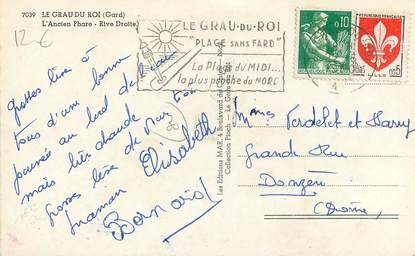 7039 LE GRAU DU ROI (Gard)
L'Ancien Phare - Rive Droite
12 €
LE GRAU-DU-ROI
"PLAGE SANS FARD"
La Plage du MIDI...
la plus proche du NORD
0,10
REPUBLIQUE FRANÇAISE
0,05
Grosses bises à
tous d'une bonne
journée au bord de
mais très chaude
grosses bises de
maman
Elisabeth
Bernard
Les Editions MAR, 4 Boulevard de
Collection Ploch - Le Grau
Mmes Verdelet et Harry
Grande Rue
Donzère
(Drôme)